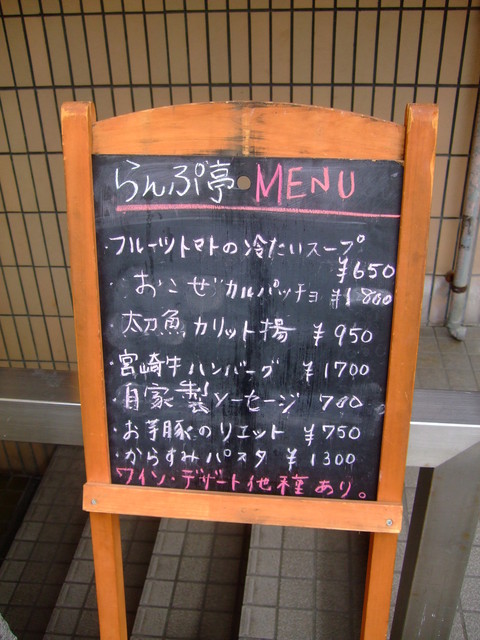 らんぷ亭・MENU
・フルーツトマトの冷たいスープ
¥650
おこぜカルパッチョ ¥1800
・太刀魚カリット揚 ¥950
・宮崎牛ハンバーグ ¥1700
・自家製ソーセージ 780
・お芋豚のリエット ¥750
・からすみパスタ ¥1300
ワイン・デザート他種あり。